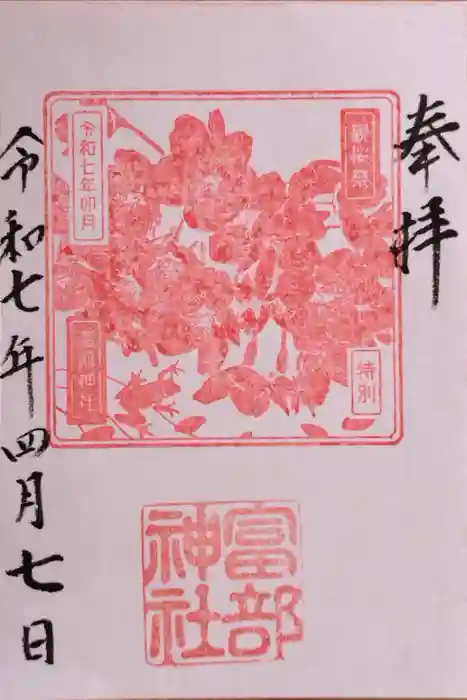 奉拝
観桜祭
特別
令和七年卯月
富部神社
富部神社
令和七年四月七日